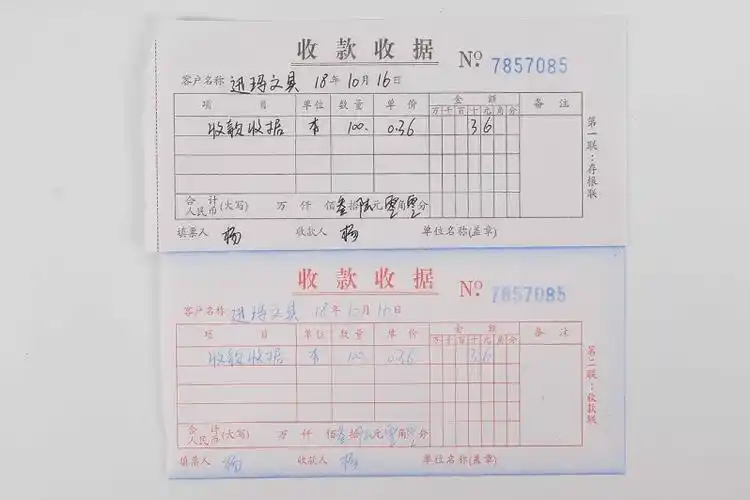 收款收据 No. 7857085
客户名称 迅玛文具 18年10月16日
项 目 单位 数量 单价 金额 备注
万 千 百 十 元 角 分
收款收据 本 100. 0.36 3 6
合计人民币(大写) 万 仟 佰 叁拾 陆元 零角 零分
填票人 杨 收款人 杨 单位名称(盖章)
第一联:存根联
收款收据 No. 7857085
客户名称 迅玛文具 18年10月16日
项 目 单位 数量 单价 金额 备注
万 千 百 十 元 角 分
收款收据 本 100 0.36 3 6
合计人民币(大写) 万 仟 佰 叁拾 陆元 零角 零分
填票人 杨 收款人 杨 单位名称(盖章)
第二联:收款联